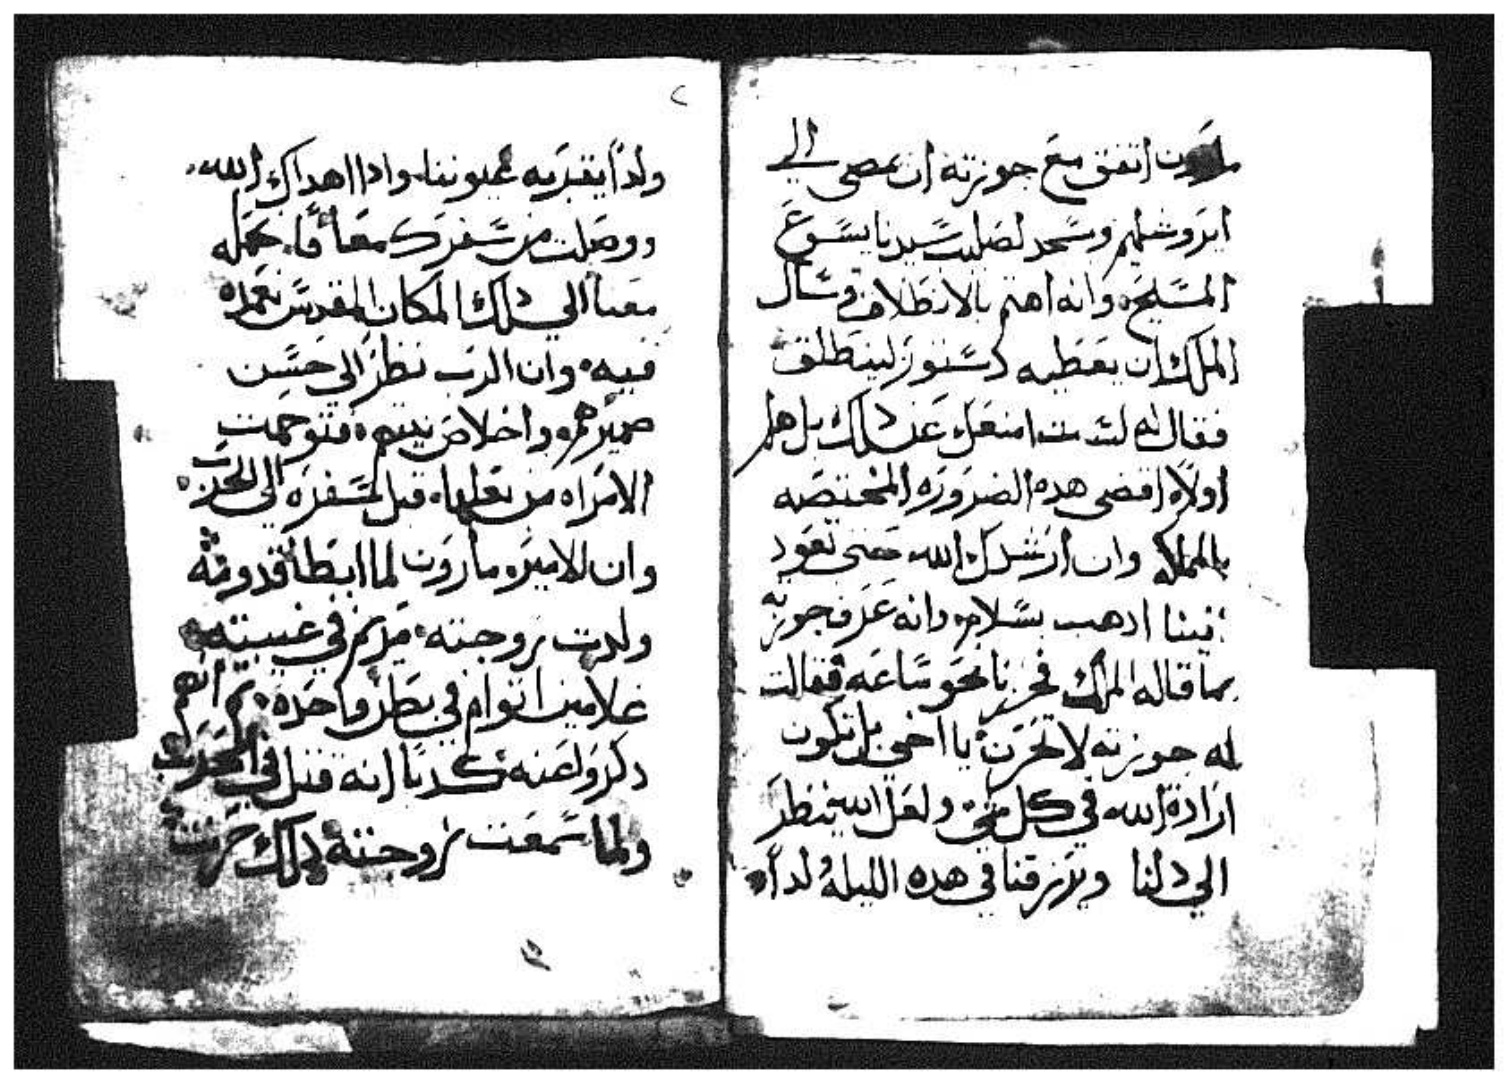 مارون اتفق مع جوزته ان يمضي الي
ايروشليم وسجد لصليب سيدنا يسوع
المسيح وانه اهتم بالانطلاق وسال
الملك ان يعطيه دستور لينطلق
فقال له لست امنعك عن دلك بل هلم
اولاً اقضي هده الضروره المختصه
بالمملكه وان ارشدك الله حتي تعود
الينا ادهب بسلام وانه عرف جوزته
بما قاله الملك فحزنا نحو ساعه فقالت
له جوزته لا تحزن يا اخي بل تكون
ارادة الله في كل شي ولعل الله ينظر
الي دلنا ويرزقنا في هده الليلة لداً
٢
ولداً يقر به عيوننا وادا اهداك الله
ووصلت من سفرك معافا حمله
معنا الي دلك المكان المقدس نعمده
فيه وان الرب نظر الي حسن
ضميرهم واخلاص نيتهم فتوحمت
الامراه من بعلها قبل سفره الي الحرب
وان الامير مارون لما ابطا قدومه
ولدت زوجته مريم في غيبته
غلامين اتوام في بطن واحده ثم انهم
دكروا عنه كدبا انه قتل في الحرب
ولما سمعت زوجته دلك حزنت